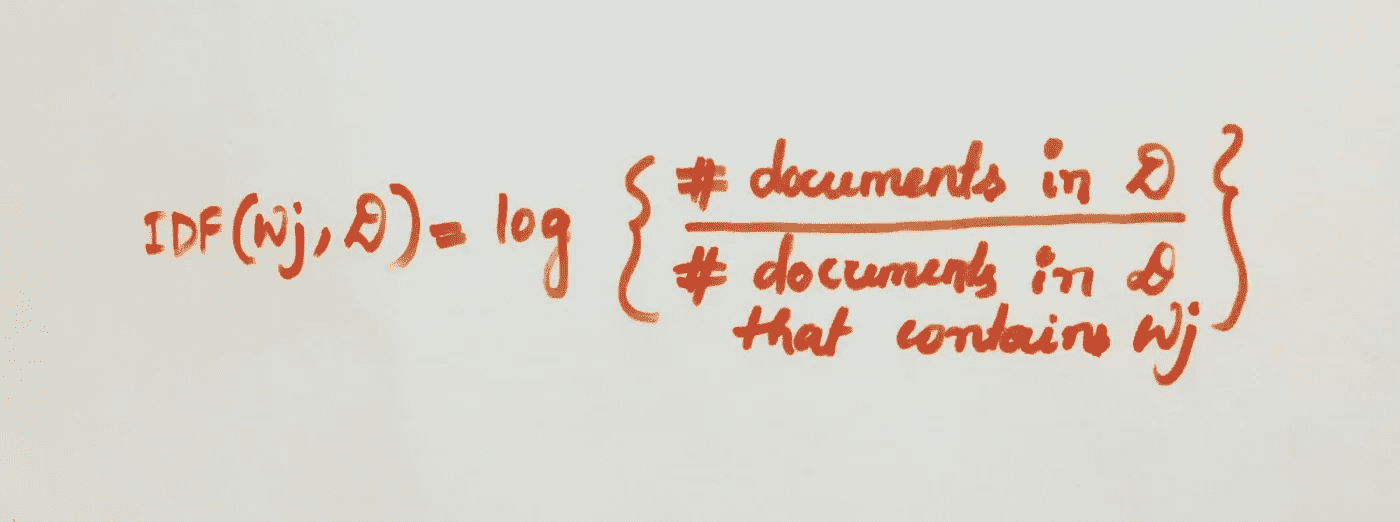 IDF(Wj, D) = log { # documents in D
# documents in D
that contains Wj }